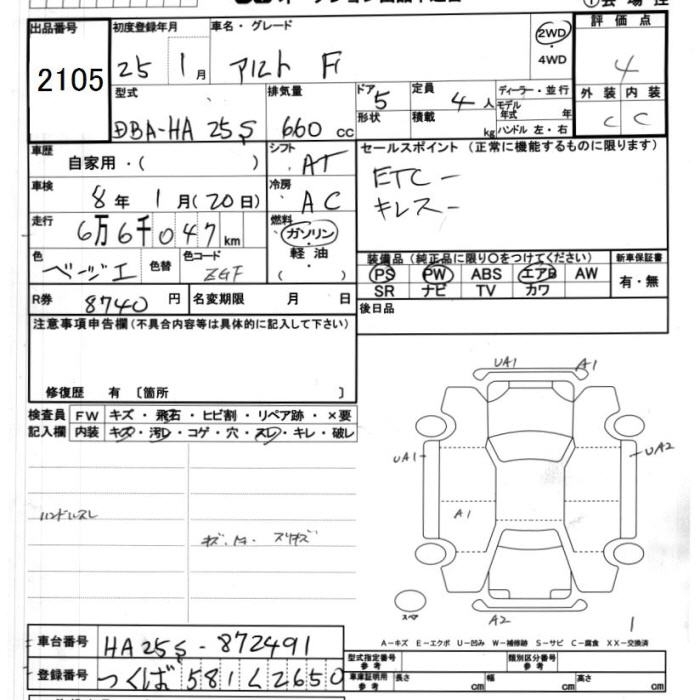 出品番号
2105
初度登録年月
25 1月
車名・グレード
アルト F
2WD
・
4WD
評価点
4
外装 内装
C C
型式
DBA-HA 25S
排気量
660 cc
ドア 5
形状
定員 4人
積載 kg
ディーラー・並行
モデル年式 年
ハンドル 左・右
車歴
自家用・( )
シフト
AT
車検
8年 1月(20日)
冷房
AC
走行
6万6千047km
燃料
ガソリン
・
軽油
・
( )
色
ベージュ
色替
色コード
ZGF
R券
8740円
名変期限 月 日
セールスポイント (正常に機能するものに限ります)
ETC-
キーレス-
装備品 (純正品に限り○をつけてください)
PS PW ABS エアB AW
SR ナビ TV カワ
新車保証書
有・無
後日品
注意事項申告欄(不具合内容等は具体的に記入して下さい)
修復歴 有 〔箇所 〕
検査員
記入欄
FW キズ・飛石・ヒビ割・リペア跡・×要
内装 キズ・汚レ・コゲ・穴・スレ・キレ・破レ
ハンドルスレ
UA1
A1
UA1
UA2
A1
スペア
A2
1
A-キズ E-エクボ U-凹み W-補修跡 S-サビ C-腐食 XX-交換済
車台番号
HA25S-872491
登録番号
つくば 581 く 2650
型式指定番号
類別区分番号
車庫証明用参考
長さ cm 幅 cm 高さ cm